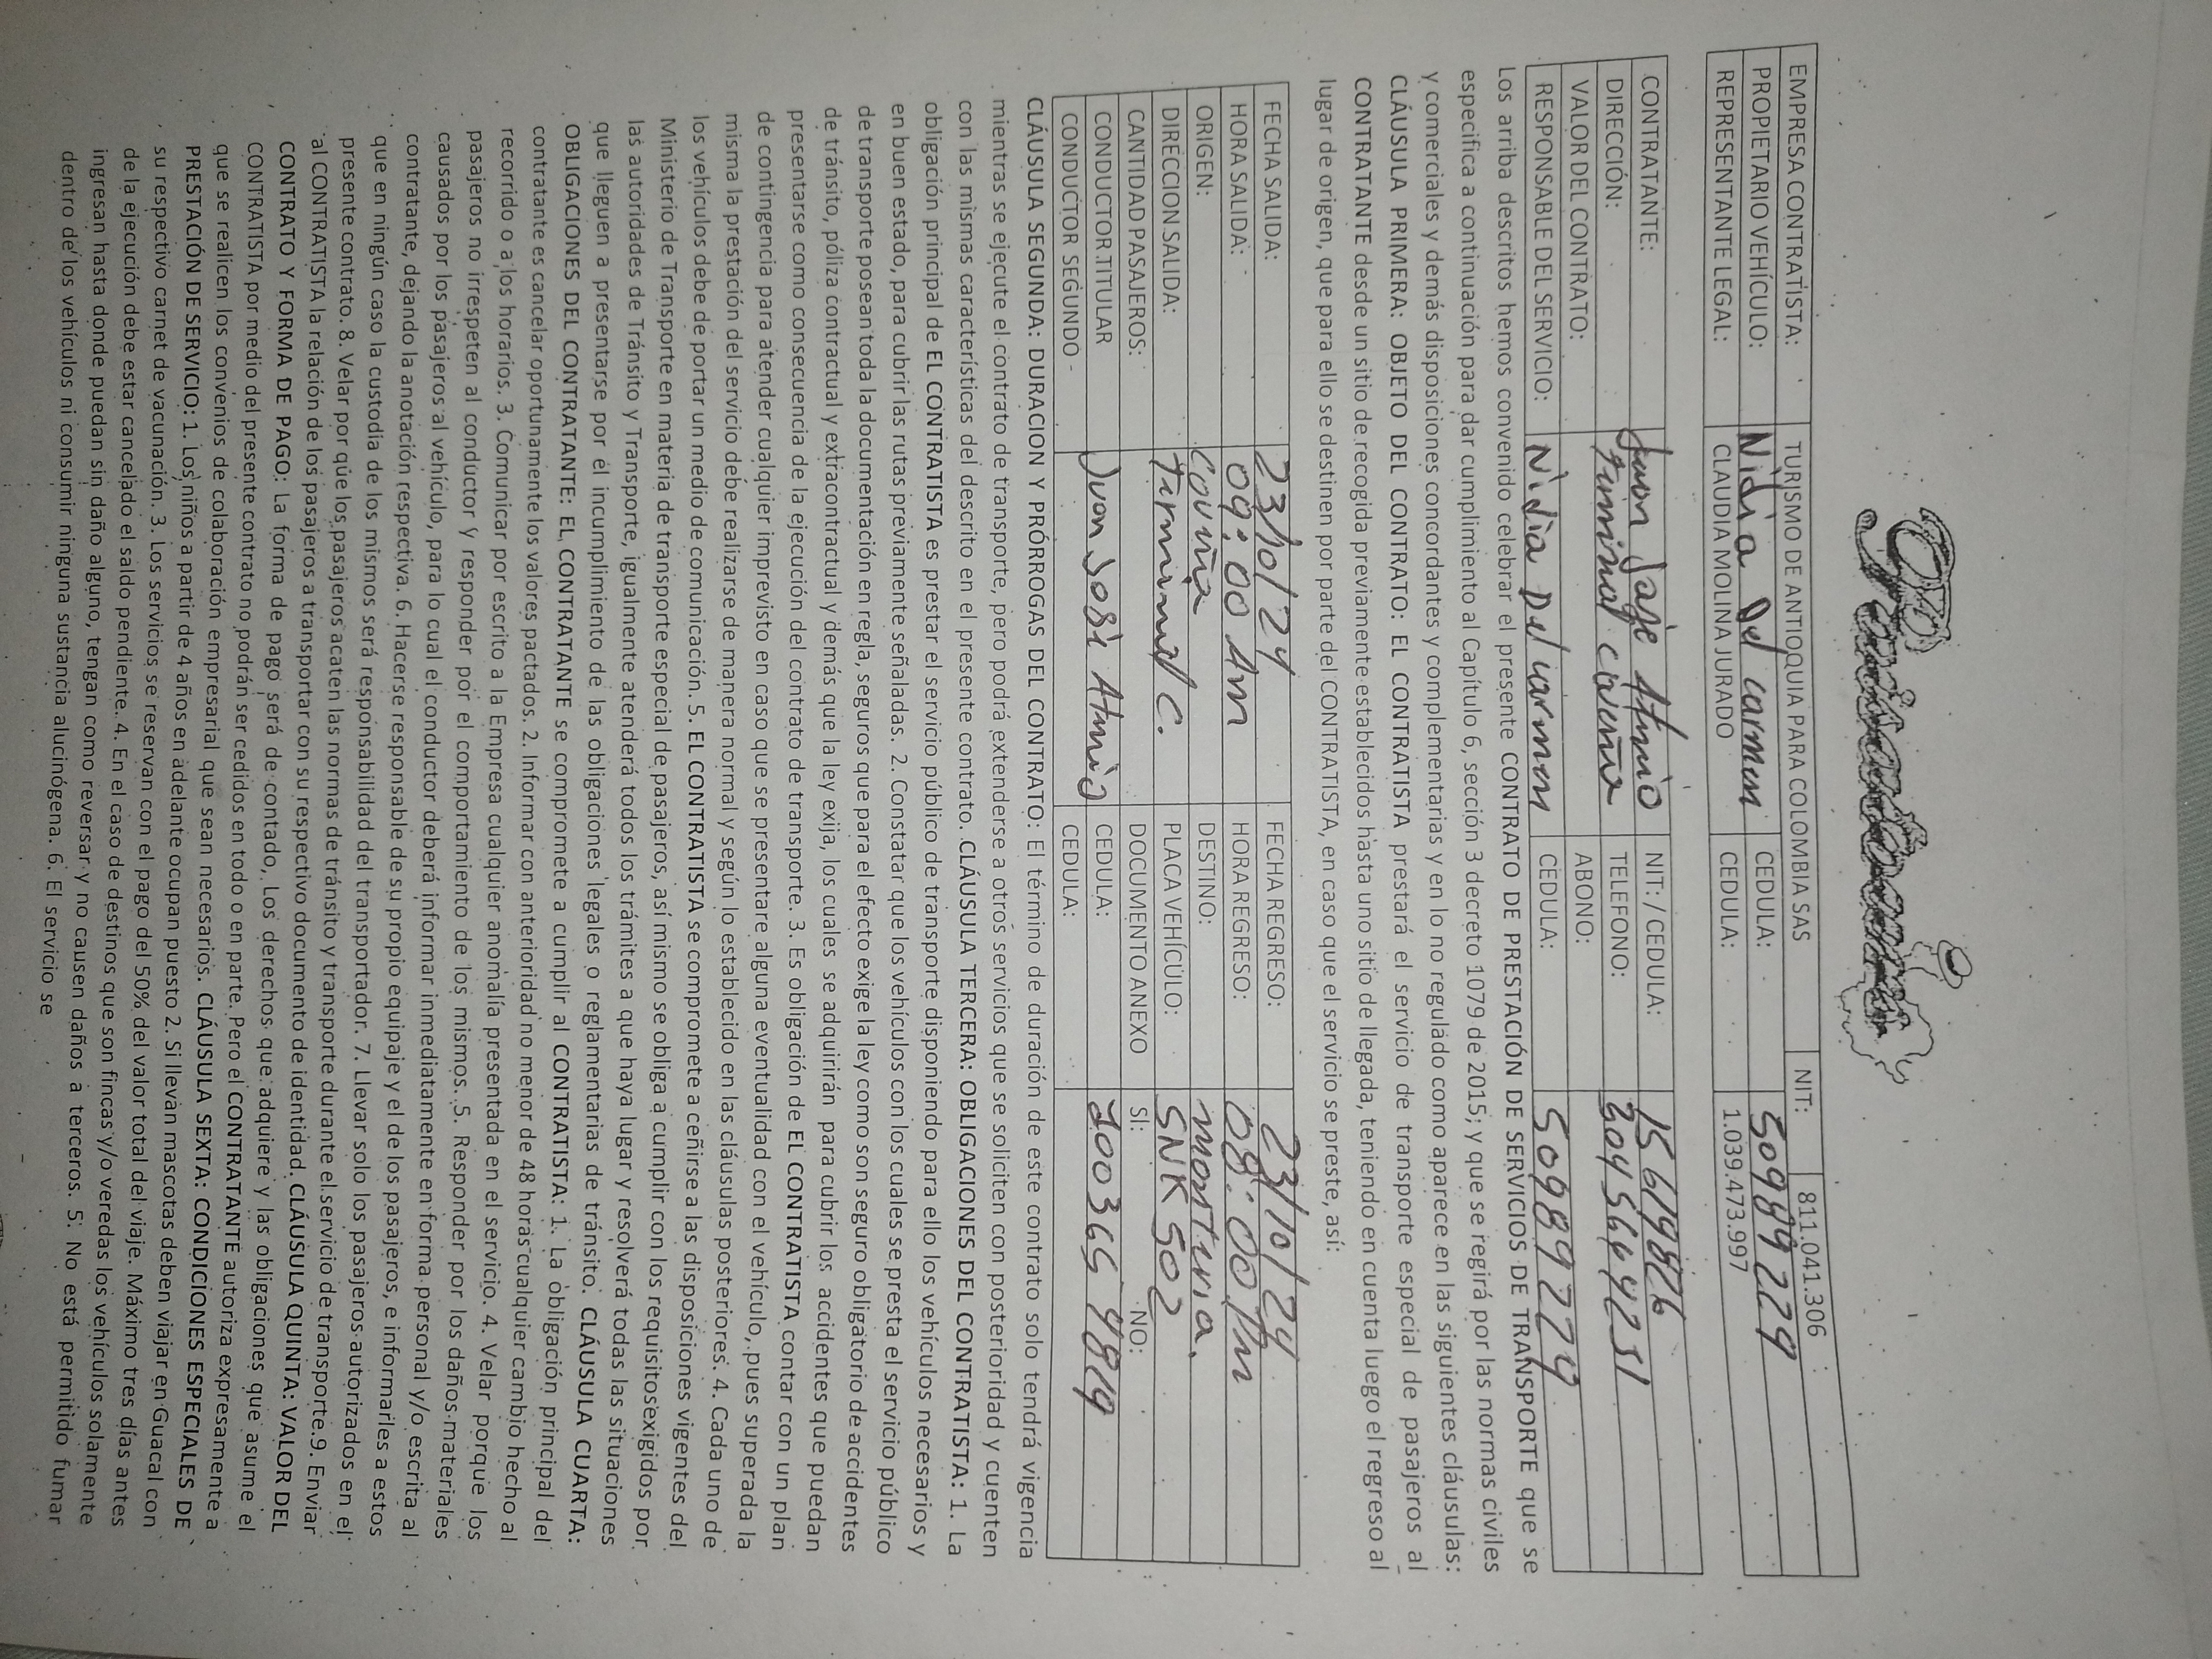 EMPRESA CONTRATISTA: TURISMO DE ANTIOQUIA PARA COLOMBIA SAS NIT: 811.041.306
PROPIETARIO VEHÍCULO: Nidia Del carmen CEDULA: 50989224
REPRESENTANTE LEGAL: CLAUDIA MOLINA JURADO CEDULA: 1.039.473.997
CONTRATANTE: Juan Jose NIT: / CEDULA: 15619826
DIRECCIÓN: terminal TELEFONO: 3045644251
VALOR DEL CONTRATO: ABONO:
RESPONSABLE DEL SERVICIO: Nidia Del carmen CÉDULA: 50989224
Los arriba descritos hemos convenido celebrar el presente CONTRATO DE PRESTACIÓN DE SERVICIOS DE TRANSPORTE que se
especifica a continuación para dar cumplimiento al Capítulo 6, sección 3 decreto 1079 de 2015; y que se regirá por las normas civiles
y comerciales y demás disposiciones concordantes y complementarias y en lo no regulado como aparece en las siguientes cláusulas:
CLÁUSULA PRIMERA: OBJETO DEL CONTRATO: EL CONTRATISTA prestará el servicio de transporte especial de pasajeros al
CONTRATANTE desde un sitio de recogida previamente establecidos hasta uno sitio de llegada, teniendo en cuenta luego el regreso al
lugar de origen, que para ello se destinen por parte del CONTRATISTA, en caso que el servicio se preste, así:
FECHA SALIDA: 23/10/24 FECHA REGRESO: 23/10/24
HORA SALIDA: 09:00 Am HORA REGRESO: 08:00 Pm
ORIGEN: DESTINO: monteria.
DIRECCION SALIDA: terminal C. PLACA VEHÍCULO: SNK 502
CANTIDAD PASAJEROS: DOCUMENTO ANEXO SI: NO:
CONDUCTOR TITULAR Juan Jose CEDULA: 1003654819
CONDUCTOR SEGUNDO CEDULA:
CLÁUSULA SEGUNDA: DURACION Y PRÓRROGAS DEL CONTRATO: El término de duración de este contrato solo tendrá vigencia
mientras se ejecute el contrato de transporte, pero podrá extenderse a otros servicios que se soliciten con posterioridad y cuenten
con las mismas características del descrito en el presente contrato. CLÁUSULA TERCERA: OBLIGACIONES DEL CONTRATISTA: 1. La
obligación principal de EL CONTRATISTA es prestar el servicio público de transporte disponiendo para ello los vehículos necesarios y
en buen estado, para cubrir las rutas previamente señaladas. 2. Constatar que los vehículos con los cuales se presta el servicio público
de transporte posean toda la documentación en regla, seguros que para el efecto exige la ley como son seguro obligatorio de accidentes
de tránsito, póliza contractual y extracontractual y demás que la ley exija, los cuales se adquirirán para cubrir los accidentes que puedan
presentarse como consecuencia de la ejecución del contrato de transporte. 3. Es obligación de EL CONTRATISTA contar con un plan
de contingencia para atender cualquier imprevisto en caso que se presentare alguna eventualidad con el vehículo, pues superada la
misma la prestación del servicio debe realizarse de manera normal y según lo establecido en las cláusulas posteriores. 4. Cada uno de
los vehículos debe de portar un medio de comunicación. 5. EL CONTRATISTA se compromete a ceñirse a las disposiciones vigentes del
Ministerio de Transporte en materia de transporte especial de pasajeros, así mismo se obliga a cumplir con los requisitos exigidos por
las autoridades de Tránsito y Transporte, igualmente atenderá todos los trámites a que haya lugar y resolverá todas las situaciones
que lleguen a presentarse por el incumplimiento de las obligaciones legales o reglamentarias de tránsito. CLÁUSULA CUARTA:
OBLIGACIONES DEL CONTRATANTE: EL CONTRATANTE se compromete a cumplir al CONTRATISTA: 1. La obligación principal del
contratante es cancelar oportunamente los valores pactados. 2. Informar con anterioridad no menor de 48 horas cualquier cambio hecho al
recorrido o a los horarios. 3. Comunicar por escrito a la Empresa cualquier anomalía presentada en el servicio. 4. Velar porque los
pasajeros no irrespeten al conductor y responder por el comportamiento de los mismos. 5. Responder por los daños materiales
causados por los pasajeros al vehículo, para lo cual el conductor deberá informar inmediatamente en forma personal y/o escrita al
contratante, dejando la anotación respectiva. 6. Hacerse responsable de su propio equipaje y el de los pasajeros, e informarles a estos
que en ningún caso la custodia de los mismos será responsabilidad del transportador. 7. Llevar solo los pasajeros autorizados en el
presente contrato. 8. Velar por que los pasajeros acaten las normas de tránsito y transporte durante el servicio de transporte.9. Enviar
al CONTRATISTA la relación de los pasajeros a transportar con su respectivo documento de identidad. CLÁUSULA QUINTA: VALOR DEL
CONTRATO Y FORMA DE PAGO: La forma de pago será de contado, Los derechos que adquiere y las obligaciones que asume el
CONTRATISTA por medio del presente contrato no podrán ser cedidos en todo o en parte. Pero el CONTRATANTE autoriza expresamente a
que se realicen los convenios de colaboración empresarial que sean necesarios. CLÁUSULA SEXTA: CONDICIONES ESPECIALES DE
PRESTACIÓN DE SERVICIO: 1. Los niños a partir de 4 años en adelante ocupan puesto 2. Si llevan mascotas deben viajar en Guacal con
su respectivo carnet de vacunación. 3. Los servicios se reservan con el pago del 50% del valor total del viaje. Máximo tres días antes
de la ejecución debe estar cancelado el saldo pendiente. 4. En el caso de destinos que son fincas y/o veredas los vehículos solamente
ingresan hasta donde puedan sin daño alguno, tengan como reversar y no causen daños a terceros. 5. No está permitido fumar
dentro de los vehículos ni consumir ninguna sustancia alucinógena. 6. El servicio se